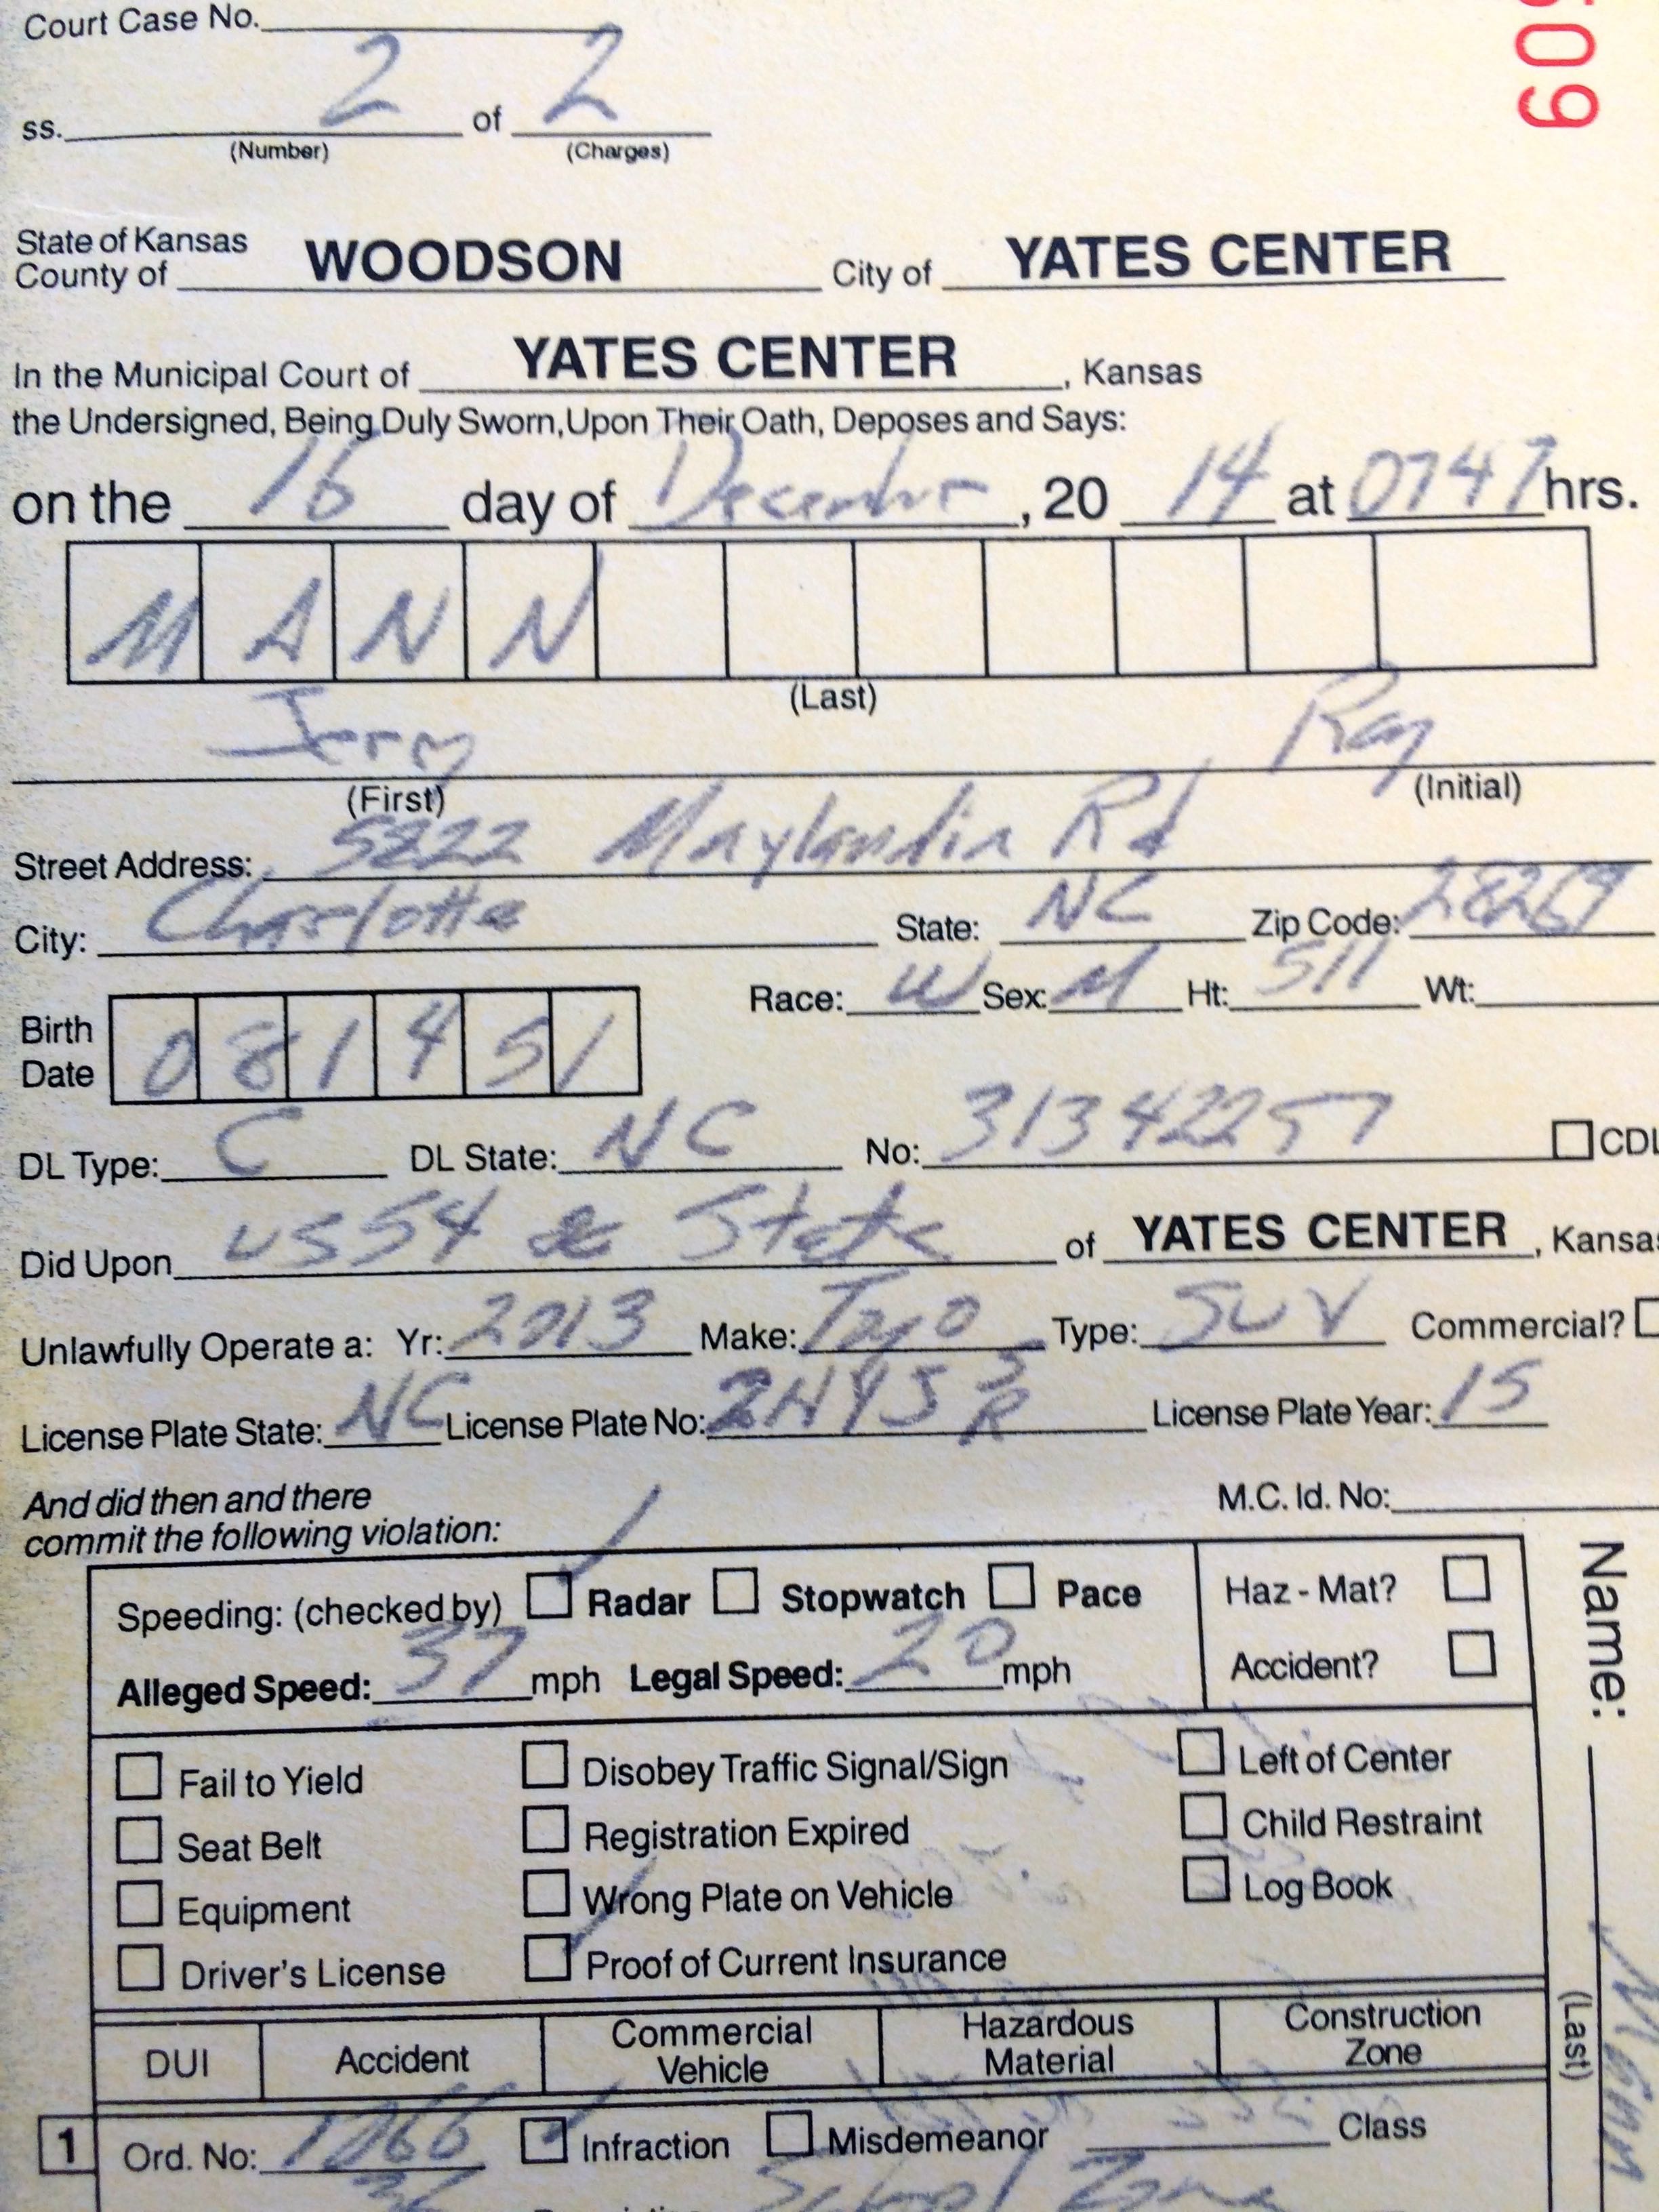 Court Case No.
509
ss. 2 of 2
(Number) (Charges)
State of Kansas
County of WOODSON City of YATES CENTER
In the Municipal Court of YATES CENTER, Kansas
the Undersigned, Being Duly Sworn, Upon Their Oath, Deposes and Says:
on the 16 day of December, 20 14 at 0747 hrs.
MANN
(Last)
Jerry Ray
(First) (Initial)
Street Address: 5222 Maylandia Rd
City: Charlotte State: NC Zip Code: 28269
Race: W Sex: M Ht: 511 Wt:
Birth Date 081451
DL Type: C DL State: NC No: 31342257 CDL
Did Upon US 54 & State of YATES CENTER, Kansas
Unlawfully Operate a: Yr: 2013 Make: Tayo Type: SUV Commercial?
License Plate State: NC License Plate No: License Plate Year: 15
And did then and there
commit the following violation: M.C. Id. No:
Speeding: (checked by) Radar Stopwatch Pace Haz - Mat?
Alleged Speed: 37 mph Legal Speed: 20 mph Accident?
Fail to Yield Disobey Traffic Signal/Sign Left of Center
Seat Belt Registration Expired Child Restraint
Equipment Wrong Plate on Vehicle Log Book
Driver's License Proof of Current Insurance
DUI Accident Commercial Vehicle Hazardous Material Construction Zone
1 Ord. No: 1266 Infraction Misdemeanor Class
School Zone
Name: Mann
(Last)